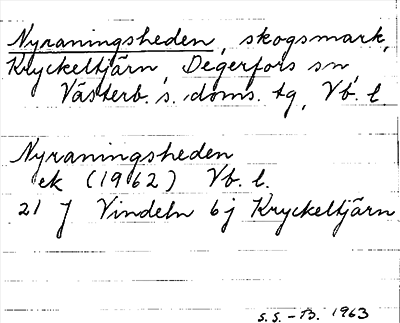 Nyraningsheden, skogsmark,
Kryckeltjärn, Degerfors sn,
Västerb. s. doms. tg, Vb. l.
Nyraningsheden
ek (1962) Vb. l.
21 J Vindeln 6j Kryckeltjärn
S.S. - B. 1963